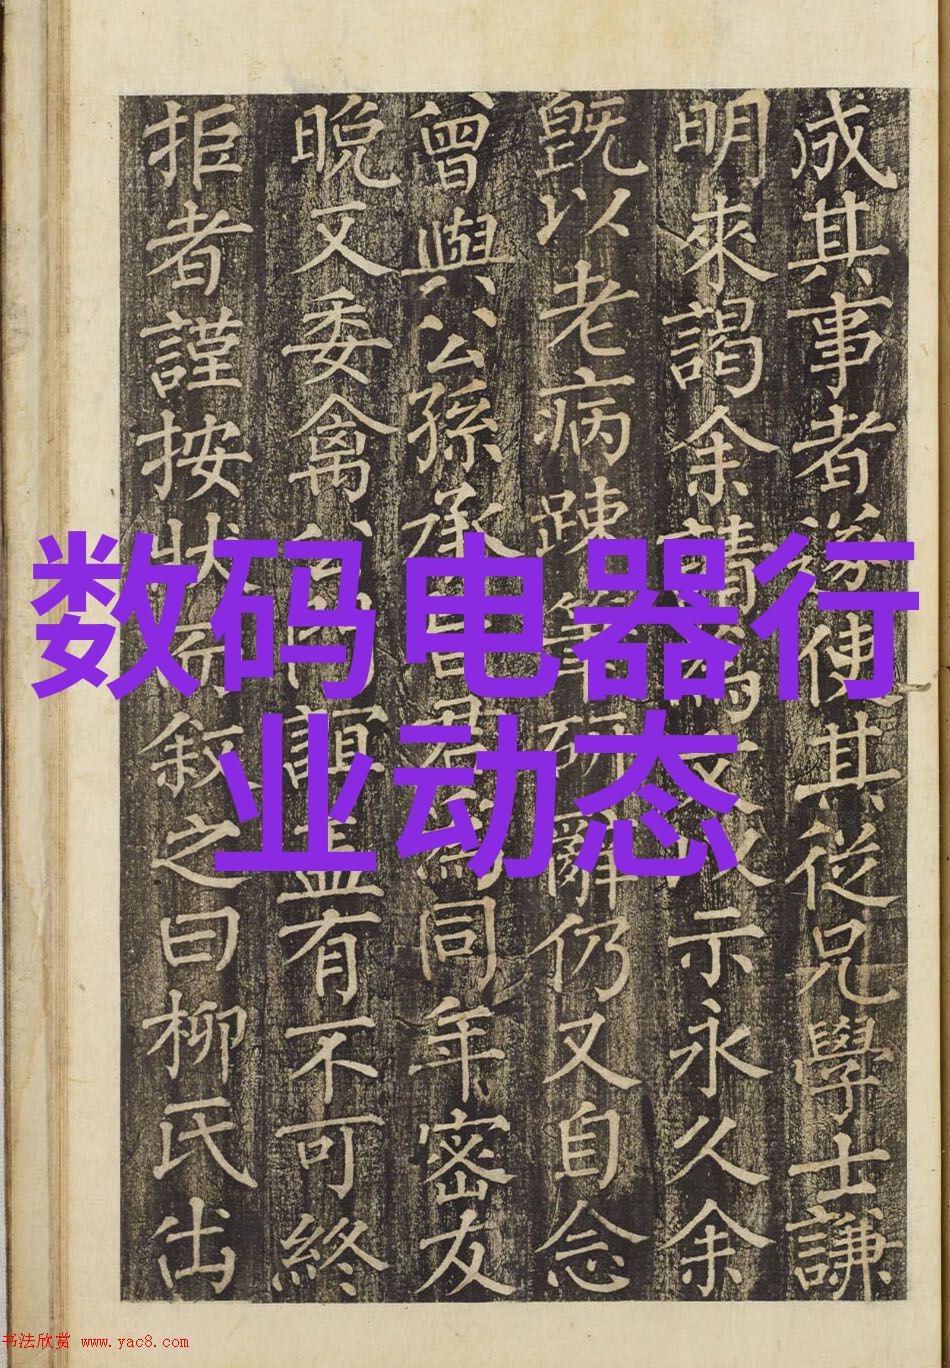 成其事者遂使其從兄學士謙
明來謁余請為文以示永久余
既以老病踈筆硯辭仍又自念
曾與公孫承旨君錫同年密友
晚又委禽公門誼蓋有不可終
拒者謹按狀而叙之曰柳氏出
数码电器行
业动态
书法欣赏 www.yac8.com